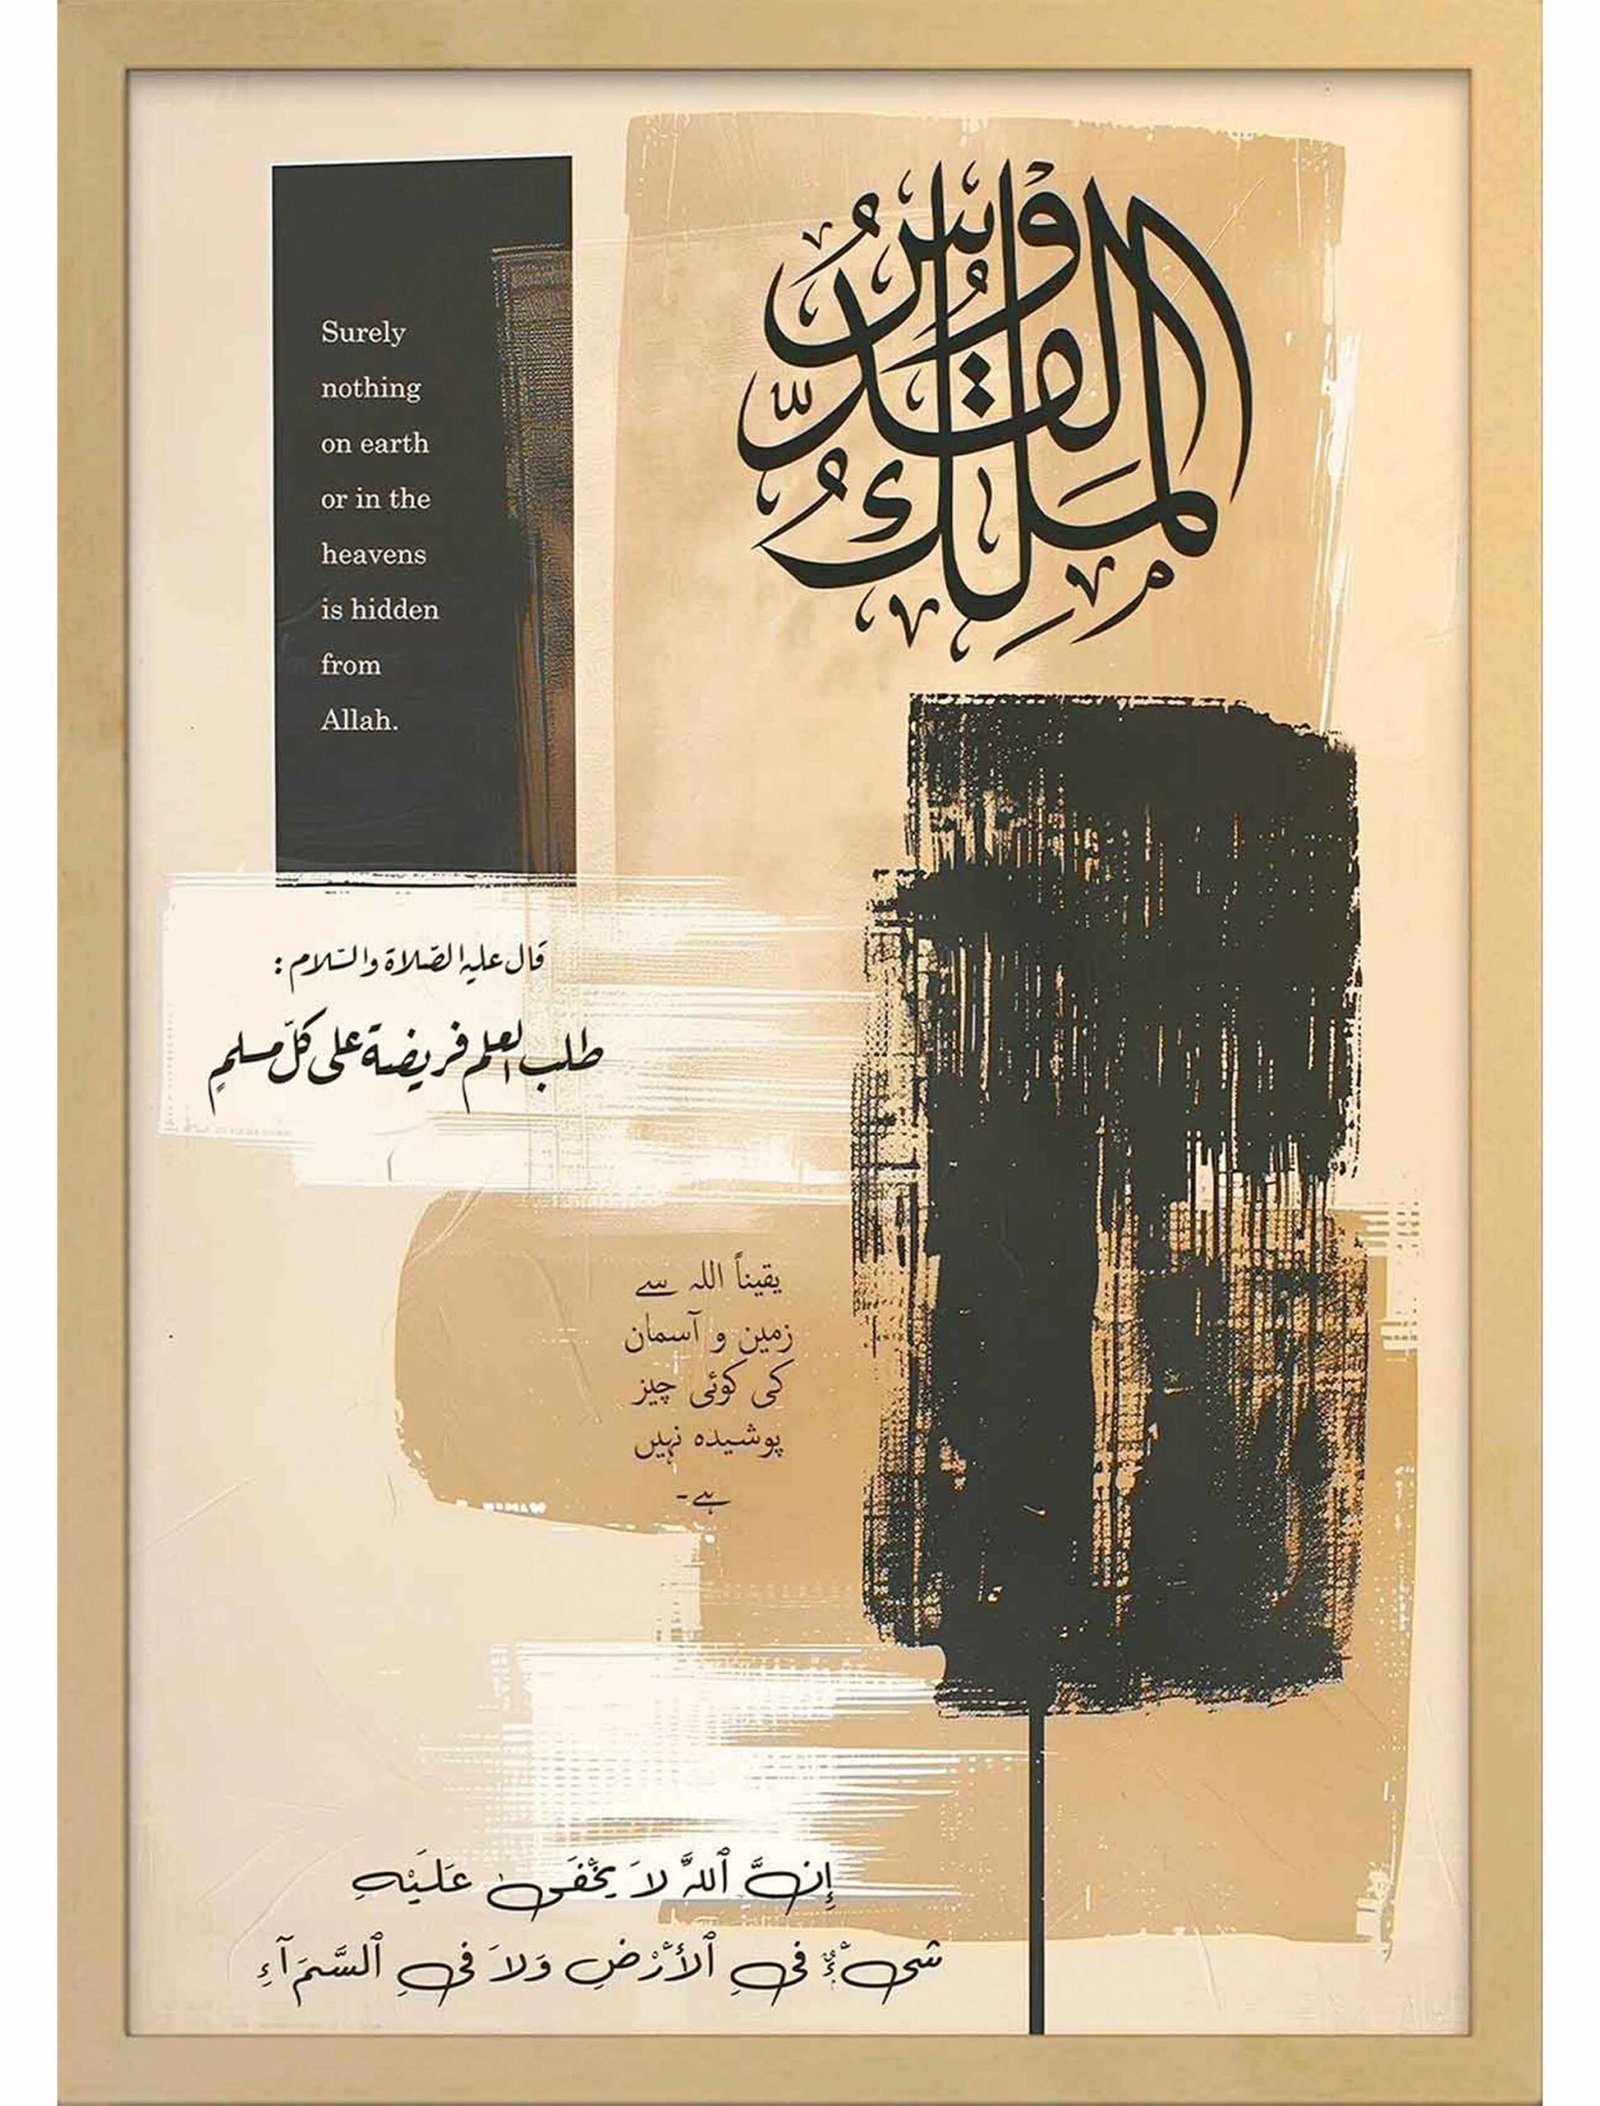 الملك القدوس
Surely
nothing
on earth
or in the
heavens
is hidden
from
Allah.
قال عليه الصلاة والسلام :
طلب العلم فريضة على كلّ مسلمٍ
یقیناً اللہ سے
زمین و آسمان
کی کوئی چیز
پوشیدہ نہیں
ہے۔
إِنَّ ٱللَّهَ لَا يَخْفَىٰ عَلَيْهِ
شَىْءٌ فِى ٱلْأَرْضِ وَلَا فِى ٱلسَّمَآءِ